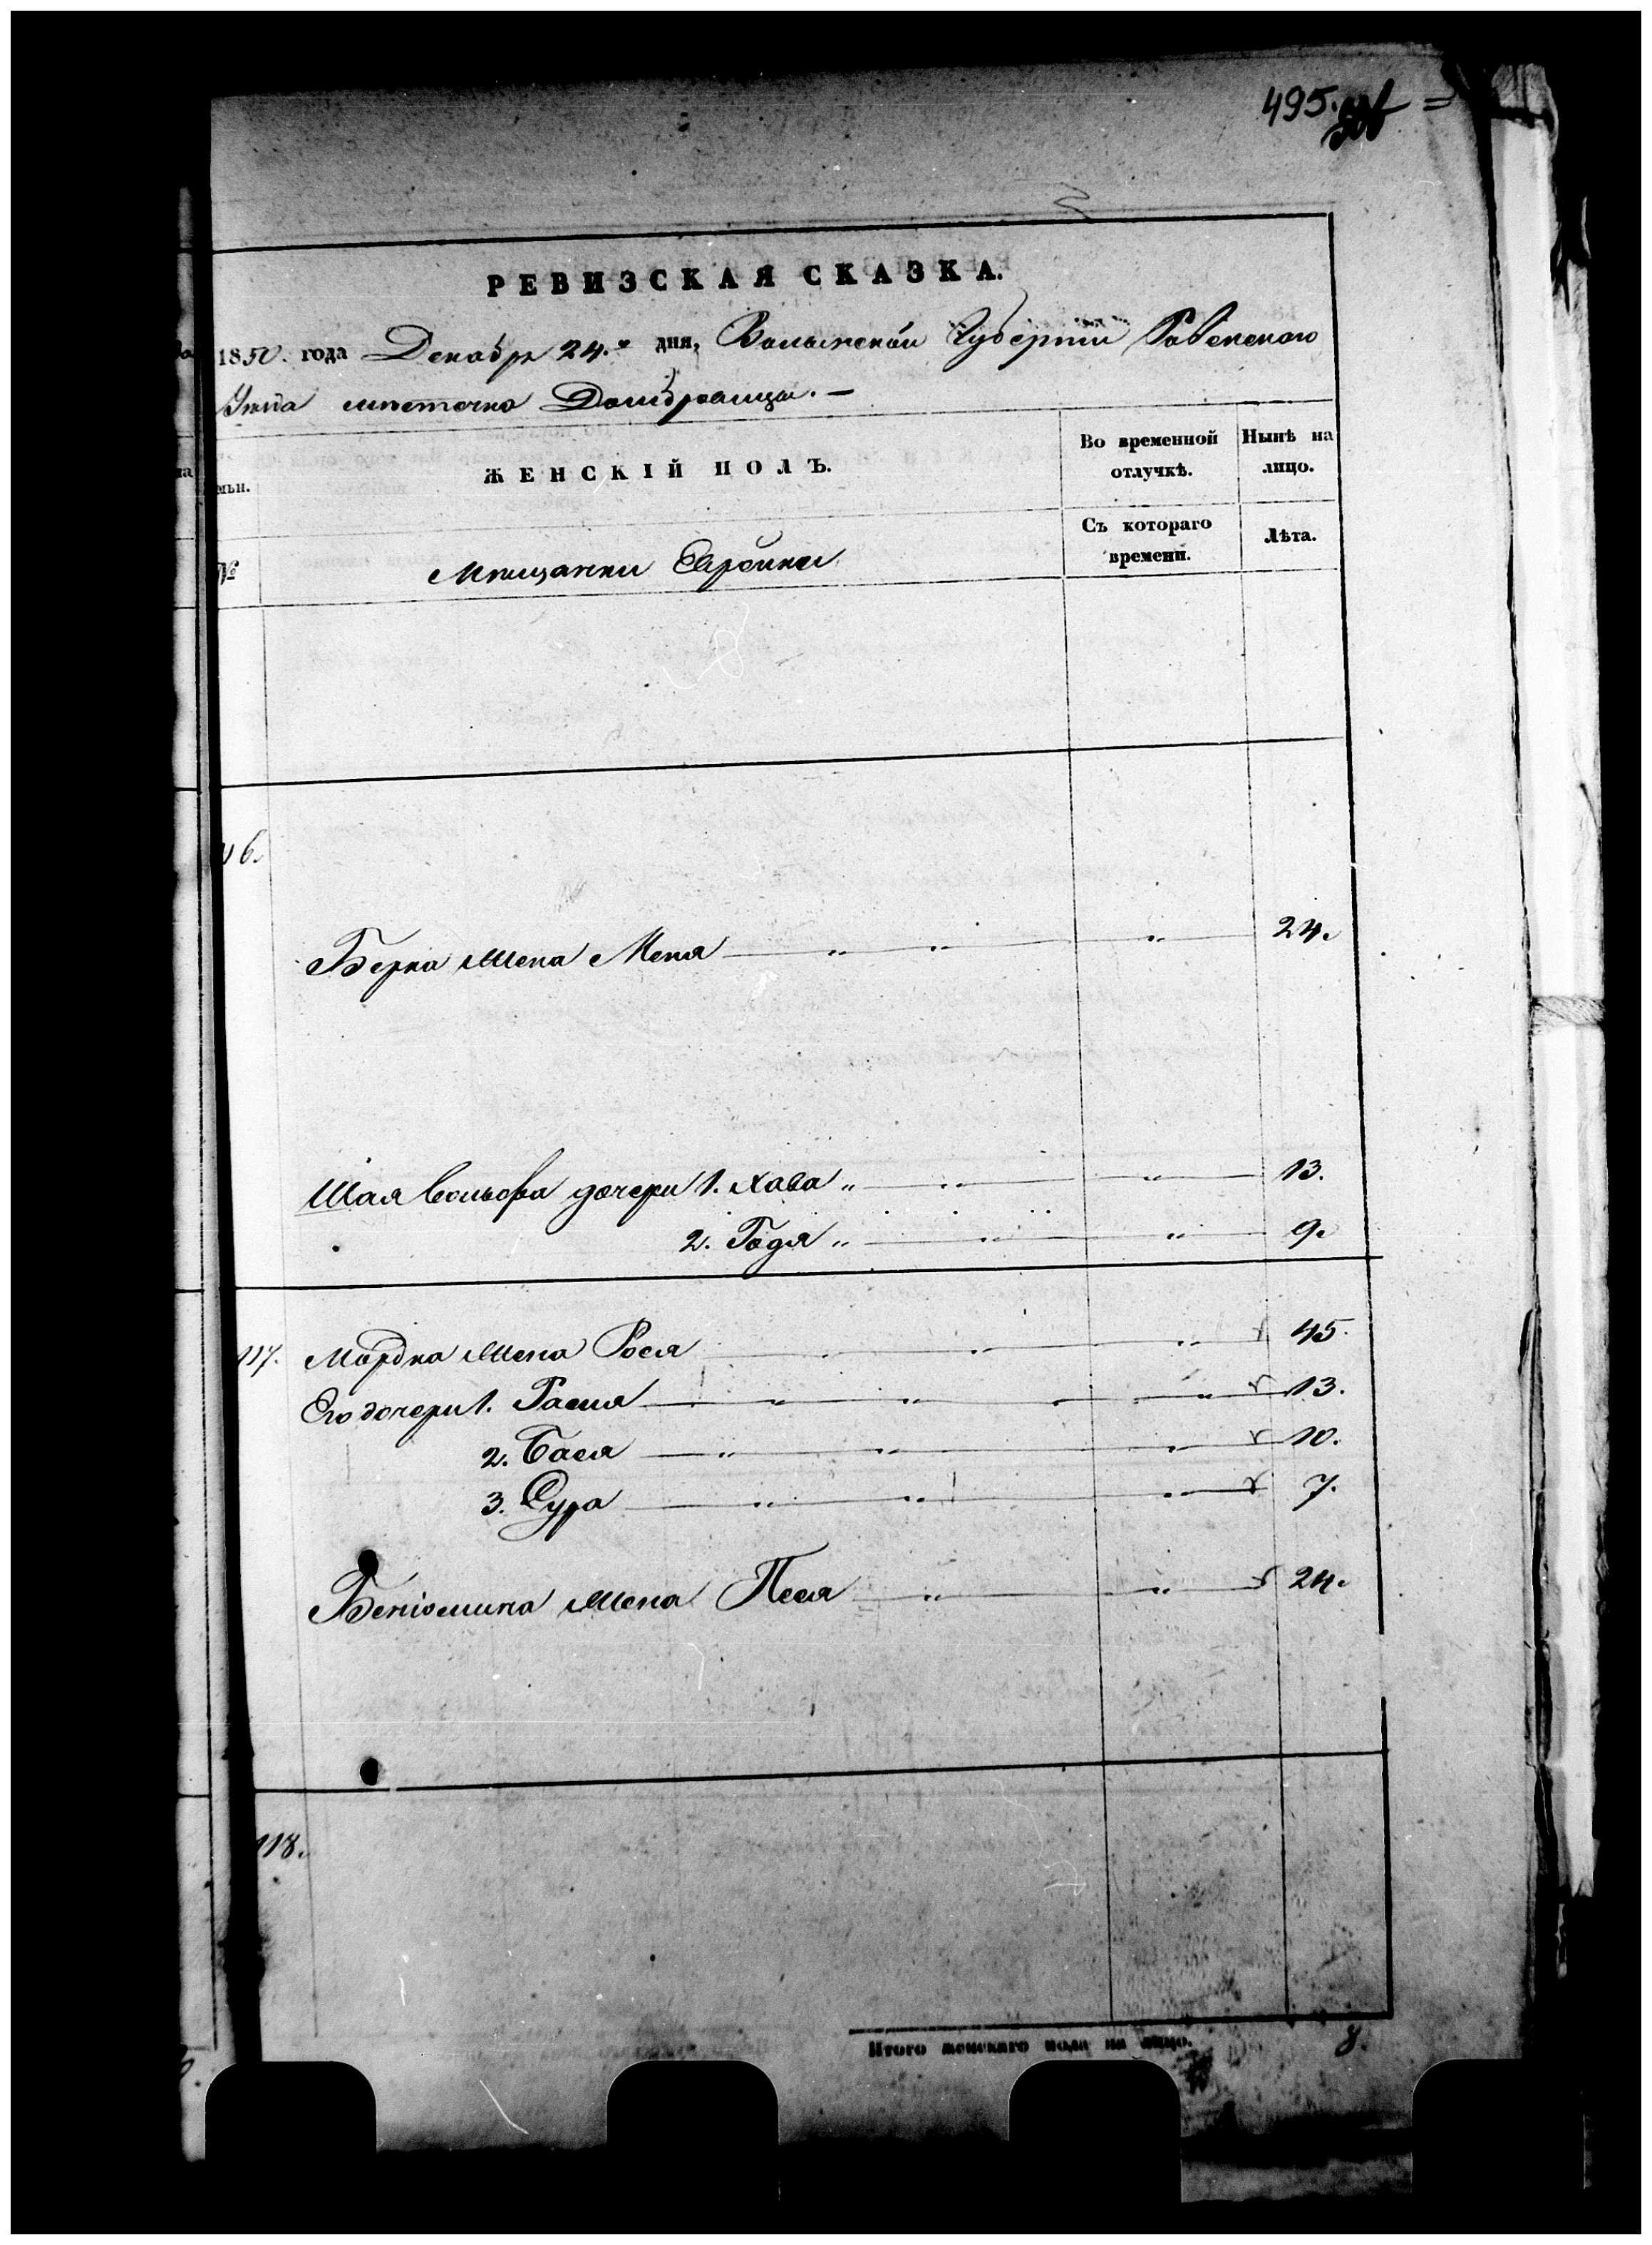 495.
РЕВИЗСКАЯ СКАЗКА.
1850. года Декабря 24.го дня, Волынской Губерніи Ровенскаго
Уезда местечка Домбровицы. —
ЖЕНСКІЙ ПОЛЪ.
Во временной отлучкѣ.
Нынѣ на лицо.
№
Мещанки Еврейки
Съ котораго времени.
Лѣта.
116.
Берка жена Меня — „ — „ — „ — 24.
Шая Вольфа дочери 1. Хава „ — „ — „ — 13.
2. Годя „ — „ — „ — 9.
117. Мордка жена Рося — „ — „ — „ — 45.
Его дочери 1. Рася — „ — „ — „ — „ — 13.
2. Бася — „ — „ — „ — 10.
3. Сура — „ — „ — „ — 7.
Беніомина жена Песя — „ — „ — 24.
118.
Итого женскаго пола на лицо. 8.